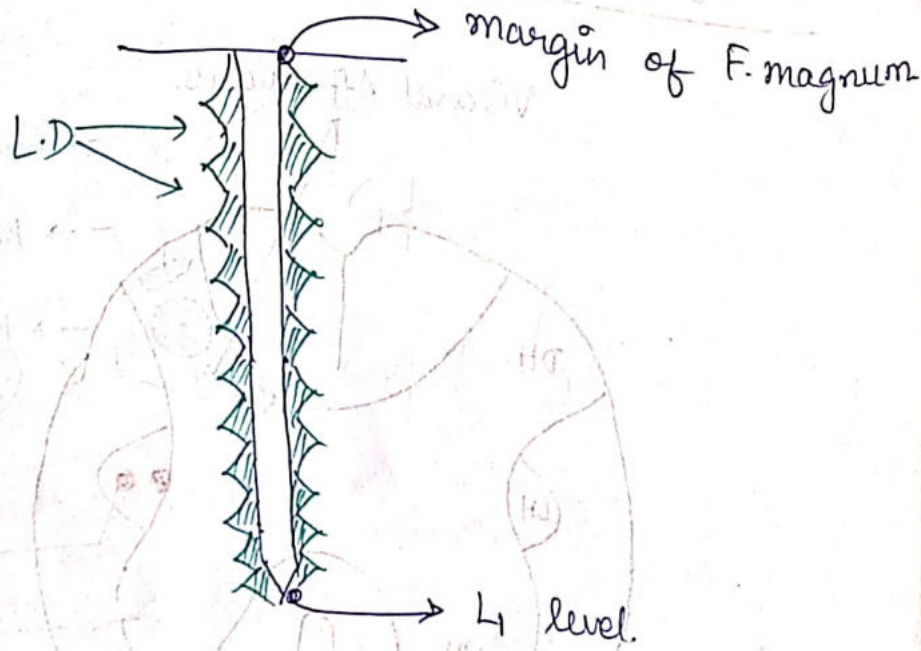 margin of F. magnum
L.D
L1 level.